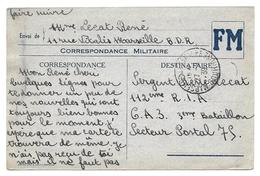 faire suivre
Envoi de : Mme Lecat René
11 rue Marseille B.D.R.
FM
CORRESPONDANCE MILITAIRE
CORRESPONDANCE
DESTINATAIRE
Mon René chéri
quelques lignes pour
te donner un peu de
nos nouvelles qui sont
toujours bien bonnes
pour le moment j'
espère que ma carte te
trouvera de même.
n'ai pas reçu de toi
mais il ne faut pas
Sergent Lecat René
112ème R.I.A
C.A.3. 3ème Bataillon
Secteur Postal 75.